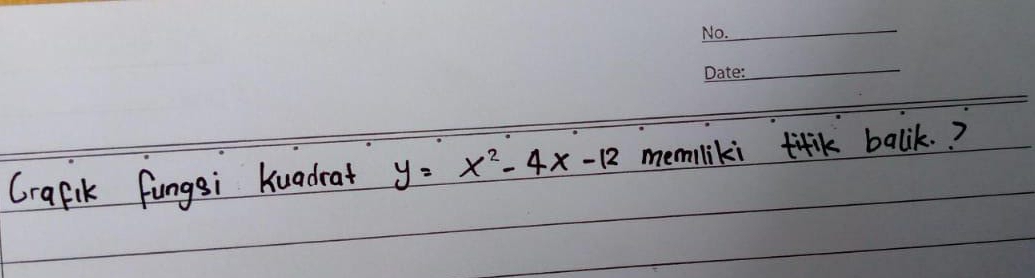 No.
Date:
Grafik fungsi kuadrat y = x² - 4x - 12 memiliki titik balik.?